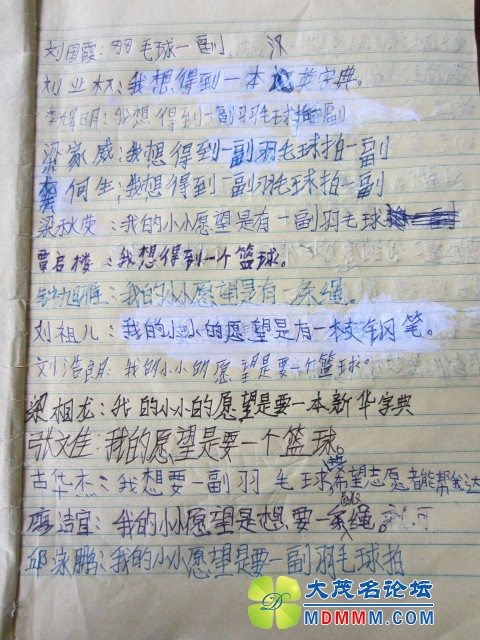 刘国霞:羽毛球一副 汉
刘业林:我想得到一本英字典。
我想得到一副羽毛球拍一副
梁家威:我想得到一副羽毛球拍一副
何生:我想得到一副羽毛球拍一副
梁秋英:我的小小愿望是有一副羽毛球
覃启楼:我想得到一个篮球。
我的小小愿望是有一条绳。
刘祖儿:我的小小的愿望是有一支钢笔。
刘浩朗:我的小小的愿望是要一个篮球。
梁相龙:我的小小的愿望是要一本新华字典
张文佳:我的愿望是要一个篮球。
古华杰:我想要一副羽毛球 希望志愿者能帮我达
廖适宜:我的小小愿望是想要一条绳。
邱泳鹏:我的小小愿望是要一副羽毛球拍
大茂名论坛
MDMMM.COM